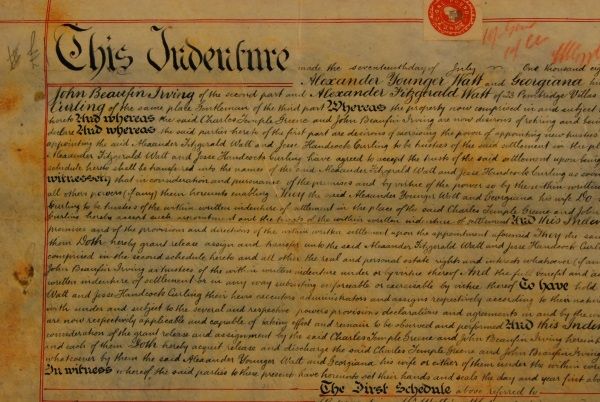 This Indenture made the seventeenth day of July One thousand eig
Alexander Younger Watt and Georgiana his
John Beaufin Irving of the second part and Alexander Fitzgerald Watt of 23 Pembridge Villas
Curling of the same place Gentleman of the third part Whereas the property now comprised in and subject
hereto And whereas the said Charles Temple Greene and John Beaufin Irving are now desirous of retiring and being
declare And whereas the said parties hereto of the first part are desirous of exercising the power of appointing new trustees
appointing the said Alexander Fitzgerald Watt and Jesse Handcocks Curling to be trustees of the said settlement in the pl
Alexander Fitzgerald Watt and Jesse Handcocks Curling have agreed to accept the trusts of the said settlement upon being
schedule hereto shall be transferred into the names of the said Alexander Fitzgerald Watt and Jesse Handcocks Curling as
witnesseth that in consideration and pursuance of the premises and by virtue of the power so by the within written
all other powers (if any) them hereunto enabling They the said Alexander Younger Watt and Georgiana his wife Do
Curling to be trustees of the within written indenture of settlement in the place of the said Charles Temple Greene and John
Curling hereby accept such appointment and the trusts of the within written indenture of settlement And this Inden
premises and of the provisions and directions of the within written settlement upon the appointment aforesaid They the
them Doth hereby grant release assign and transfer unto the said Alexander Fitzgerald Watt and Jesse Handcock Curl
comprised in the second schedule hereto and all other the real and personal estate rights and interests whatsoever (if any
John Beaufin Irving as trustees of the within written indenture under or by virtue thereof And the full benefit and
written indenture of settlement or in any way subsisting enforceable or exercisable by virtue thereof To have
Watt and Jesse Handcock Curling their heirs executors administrators and assigns respectively according to their nature
with under and subject to the several and respective powers provisions declarations and agreements in and by the
are now respectively applicable and capable of taking effect and remain to be observed and performed And this Inden
consideration of the grant release and assignment by the said Charles Temple Greene and John Beaufin Irving
and each of them Doth hereby acquit release and discharge the said Charles Temple Greene and John Beaufin Irving
whatsoever by them the said Alexander Younger Watt and Georgiana his wife or either of them under the within
In witness whereof the said parties to these present have hereunto set their hands and seals the day and year first ab
The First Schedule above referred to